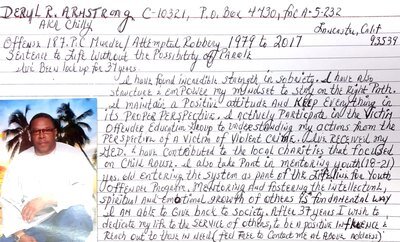 DERYL R. ARMSTRONG C-10321, P.O. Box 4430, fac A-5-232
AKA Chilly Lancaster, Calif
Offense 187. P.C Murder/Attempted Robbery 1979 to 2017 93539
Sentence to Life Without the Possibility of Parole
Ive Been lock up for 37 years
I have found incredible strength in Sobriety. I have also
structure & emPower my mindset to stay on the Right Path.
I maintain a Positive attitude And KEEP Everything in
its PROPER PERSPECTIVE. I actively Participate in the Victim
Offender Education Group to understanding my actions from the
PERSPECTIVE of A Victim of Violent Crime. I Luv RECEIVED my
GED. & have Contributed to the local charities that focused
on Child Abuse. I also take Part in mentoring youth (18-21)
yrs. old ENTERING the System as Part of the Lifeline for Youth
Offender Program. Mentoring and fostering the intellectual,
spiritual and emotional growth of others is fundamental way
I am Able to Give back to Society. After 37 years I wish to
dedicate my life to the SERVICE of others, to be a positive INFLUENCE &
Reach out to those in need (feel free to Contact me at Above Address)